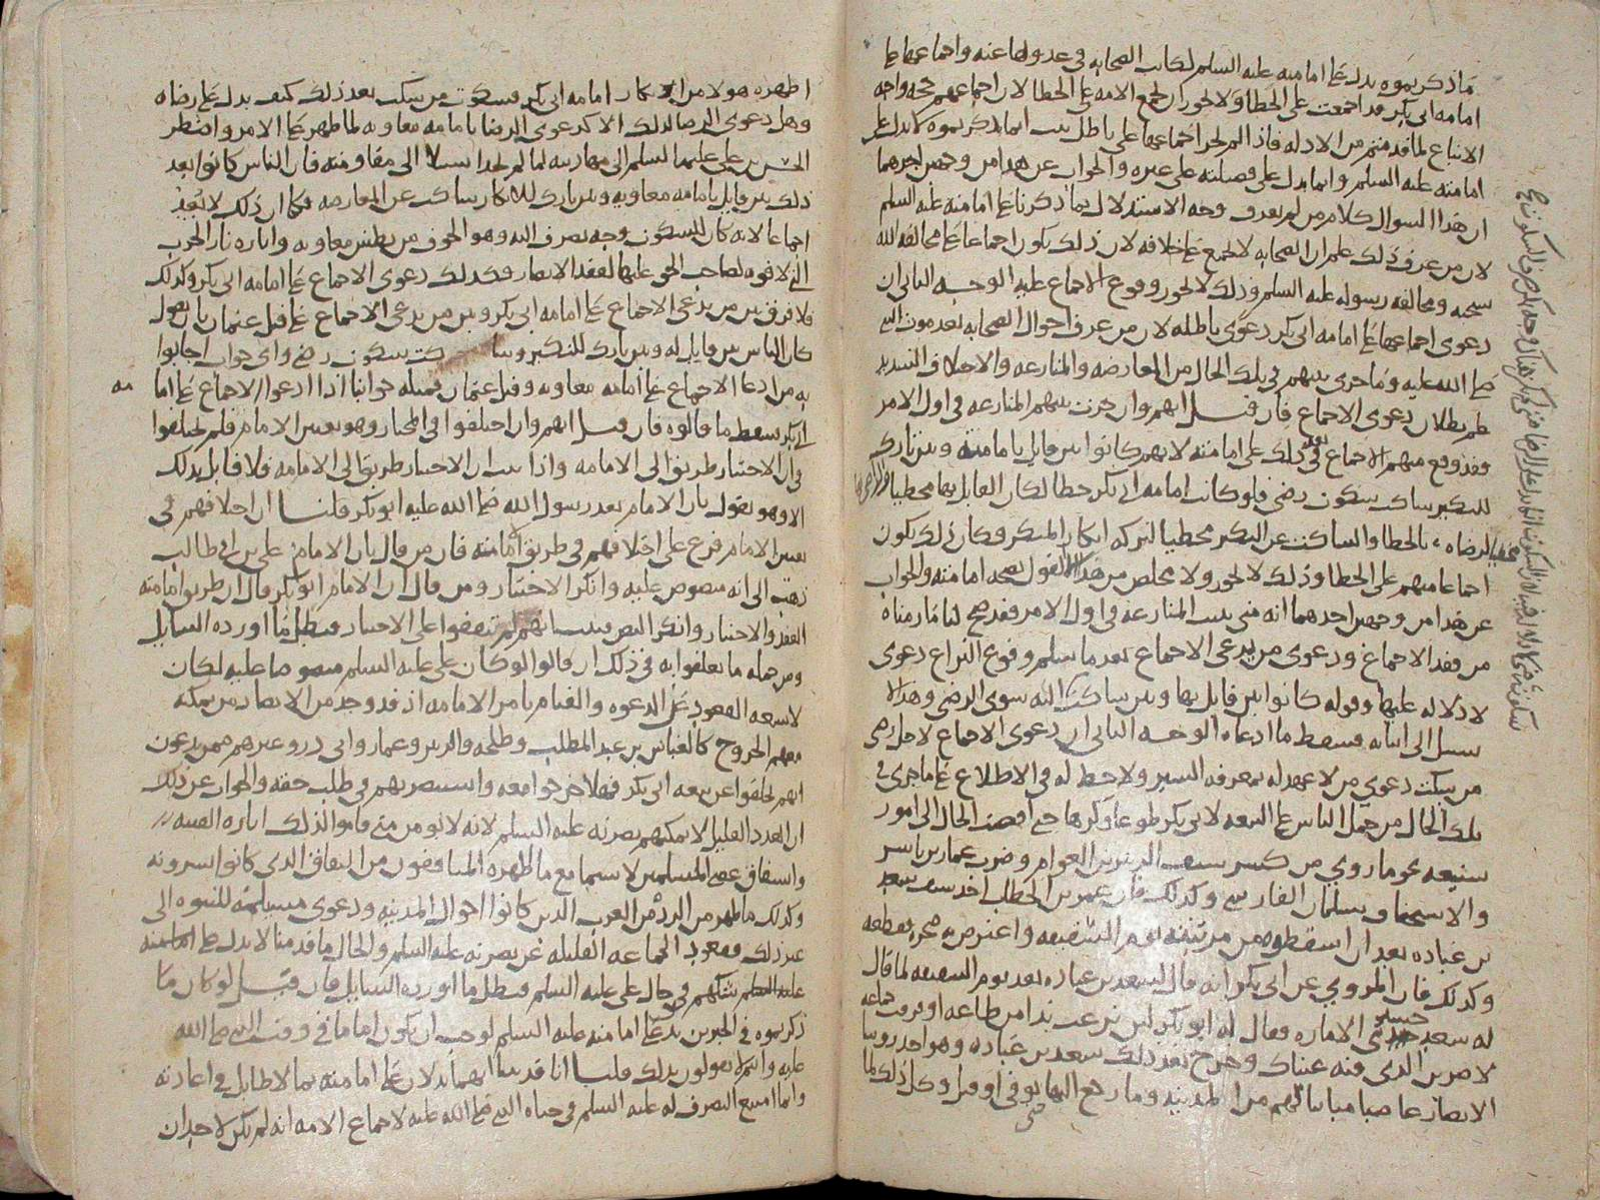 ما ذكرتموه يدل على امامته عليه السلم لكانت الصحابه في عدولها عنه واجماعها على
امامه ابي بكر قد اجتمعت على الخطا ولا يجوز ان تجمع الامه على الخطا لان اجماعهم حجه واجبه
الاتباع لما قدمتم من الادله فاذا لم يجز اجماعها على باطل ثبت ان ما ذكرتموه لا يدل على
امامته عليه السلم وانما يدل على فضيلته على غيره والجواب عن هذا من وجهين احدهما
ان هذا السوال كلام من لم يعرف وجه الاستدلال بما ذكرنا على امامته عليه السلم
لان من عرف ذلك علم ان الصحابه لا تجمع على خلافه لان ذلك يكون اجماعا على مخالفه الله
سبحنه ومخالفه رسوله عليه السلم وذلك لا يجوز وقوع الاجماع عليه الوجه الثاني ان
دعوى اجماعها على امامه ابي بكر دعوى باطله لان من عرف احوال الصحابه بعد موت النبي
صلى الله عليه وما جرى بينهم في تلك الحال من المعارضه والمنازعه والاختلاف الشديد
علم بطلان دعوى الاجماع فان قيل انهم وان جرت بينهم المنازعه في اول الامر
فقد وقع منهم الاجماع بعد ذلك على امامته لانهم كانوا بين قايل بامامته وبين تارك
للنكير ساكت سكوت رضى فلو كانت امامه ابي بكر خطا لكان القايل بها مخطيا
لرضاه بالخطا والساكت عن النكير مخطيا لتركه انكار المنكر وكان ذلك يكون
اجماعا منهم على الخطا وذلك لا يجوز ولا مخلص من هذا الا القول بصحه امامته والجواب
عن هذا من وجهين احدهما انه متى ثبت المنازعه في اول الامر فقد صح لنا ما رمناه
من فقد الاجماع ودعوى من يدعي الاجماع بعد ما سلم وقوع النزاع دعوى
لا دلاله عليها وقوله كانوا بين قايل بها وبين ساكت سكوت الرضى وهذا لا
سبيل الى اثباته فسقط ما ادعاه الوجه الثاني ان دعوى الاجماع لاجل رضى
من سكت دعوى من لا عهد له بمعرفه السير ولا حظ له في الاطلاع على ما جرى في
تلك الحال من حمل الناس على البيعه لابي بكر طوعا وكرها حتى افضت الحال الى امور
شنيعه نحو ما روي من كسر سيف الزبير بن العوام وضرب عمار بن ياسر
والاستخفاف بسلمان الفارسي وكذلك فان عمر بن الخطاب اخذ سيف سعد
بن عباده بعد ان اسقطوه من مرتبته يوم السقيفه واعترض به صخره فقطعه
وكذلك فان المروي عن ابي بكر انه قال لسعد بن عباده بعد يوم السقيفه لما قال
له سعد الاماره فقال له ابو بكر لئن نزعت يدا من طاعه او فرقت جماعه
لاضربن الذي فيه عيناك وخرج بعد ذلك سعد بن عباده وهو احد روسا
الانصار غاضبا مباينا لهم من المدينه وما رجع اليها حتى توفي او قتل وكل ذلك لما
اظهره هولا من انكار امامه ابي بكر فسكوت من سكت بعد ذلك كيف يدل على رضاه
وهل دعوى الرضا لذلك الا كدعوى الرضا بامامه معاويه لما ظهر على الامر واضطر
الحسن بن علي عليهما السلم الى مهادنته لما لم يجد سبيلا الى مقاومته فان الناس كانوا بعد
ذلك بين قايل بامامه معاويه وبين تارك للانكار ساكت عن المعارضه فكما ان ذلك لا يعد
اجماعا لانه كان للسكوت وجه يصرف اليه وهو الخوف من بطش معاويه واثاره نار الحرب
التي لا قوه لصاحب الحق عليها لفقد الانصار فكذلك دعوى الاجماع على امامه ابي بكر وكذلك
فلا فرق بين من يدعي الاجماع على امامه ابي بكر وبين من يدعي الاجماع على قتل عثمان بان يقول
كان الناس بين قايل له وبين تارك للنكير وساكت سكوت رضى واي جواب اجابوا
به من ادعا الاجماع على امامه معاويه وقتل عثمان فمثله جوابنا اذا ادعوا الاجماع على امامه
ابي بكر فسقط ما قالوه فان قيل انهم وان اختلفوا في المختار وهو تعيين الامام فلم يختلفوا
في ان الاختيار طريق الى الامامه واذا ثبت ان الاختيار طريق الى الامامه فلا قايل بذلك
الا وهو يقول بان الامام بعد رسول الله صلى الله عليه ابو بكر قلنا ان اختلافهم في
تعيين الامام فرع على اختلافهم في طريق امامته فان من قال بان الامام علي بن ابي طالب
ذهب الى انه منصوص عليه وانكر الاختيار ومن قال ان الامام ابو بكر قال ان طريق امامته
العقد والاختيار وانكر النص فثبت انهم لم يتفقوا على الاختيار فبطل ما اورده السايل
ومن جمله ما تعلقوا به في ذلك ان قالوا لو كان علي عليه السلم منصوصا عليه لكان
لا يسعه القعود عن الدعوه والقيام بامر الامامه اذ قد وجد من الانصار من يمكنه
معهم الخروج كالعباس بن عبد المطلب وطلحه والزبير وعمار وابي ذر وغيرهم ممن يدعون
انهم تخلفوا عن بيعه ابي بكر فهلا خرجوا معه واستنصر بهم في طلب حقه والجواب عن ذلك
ان العدد القليل لا يمكنهم نصرته عليه السلم لانه لا يومن متى قاموا لذلك اثاره الفتنه
وانشقاق عصى المسلمين لا سيما مع ما اظهره المنافقون من النفاق الذي كانوا يسرونه
وكذلك ما ظهر من الرده من العرب الذين كانوا احوال المدينه ودعوى مسيلمه للنبوه الى
غير ذلك فقعود الجماعه القليله عن نصرته عليه السلم والحال ما قدمنا لا يدل على
شكهم في حال علي عليه السلم فبطل ما اورده السايل فان قيل لو كان ما
ذكرتموه في الخبرين يدل على امامته عليه السلم لوجب ان يكون اماما في وقت النبي صلى الله
عليه وانتم لا تقولون بذلك قلنا انا قد بينا انهما يدلان على امامته بما لا طايل في اعادته
وانما امتنع التصرف له عليه السلم في حياه النبي صلى الله عليه لاجماع الامه انه لم يكن لاحد ان